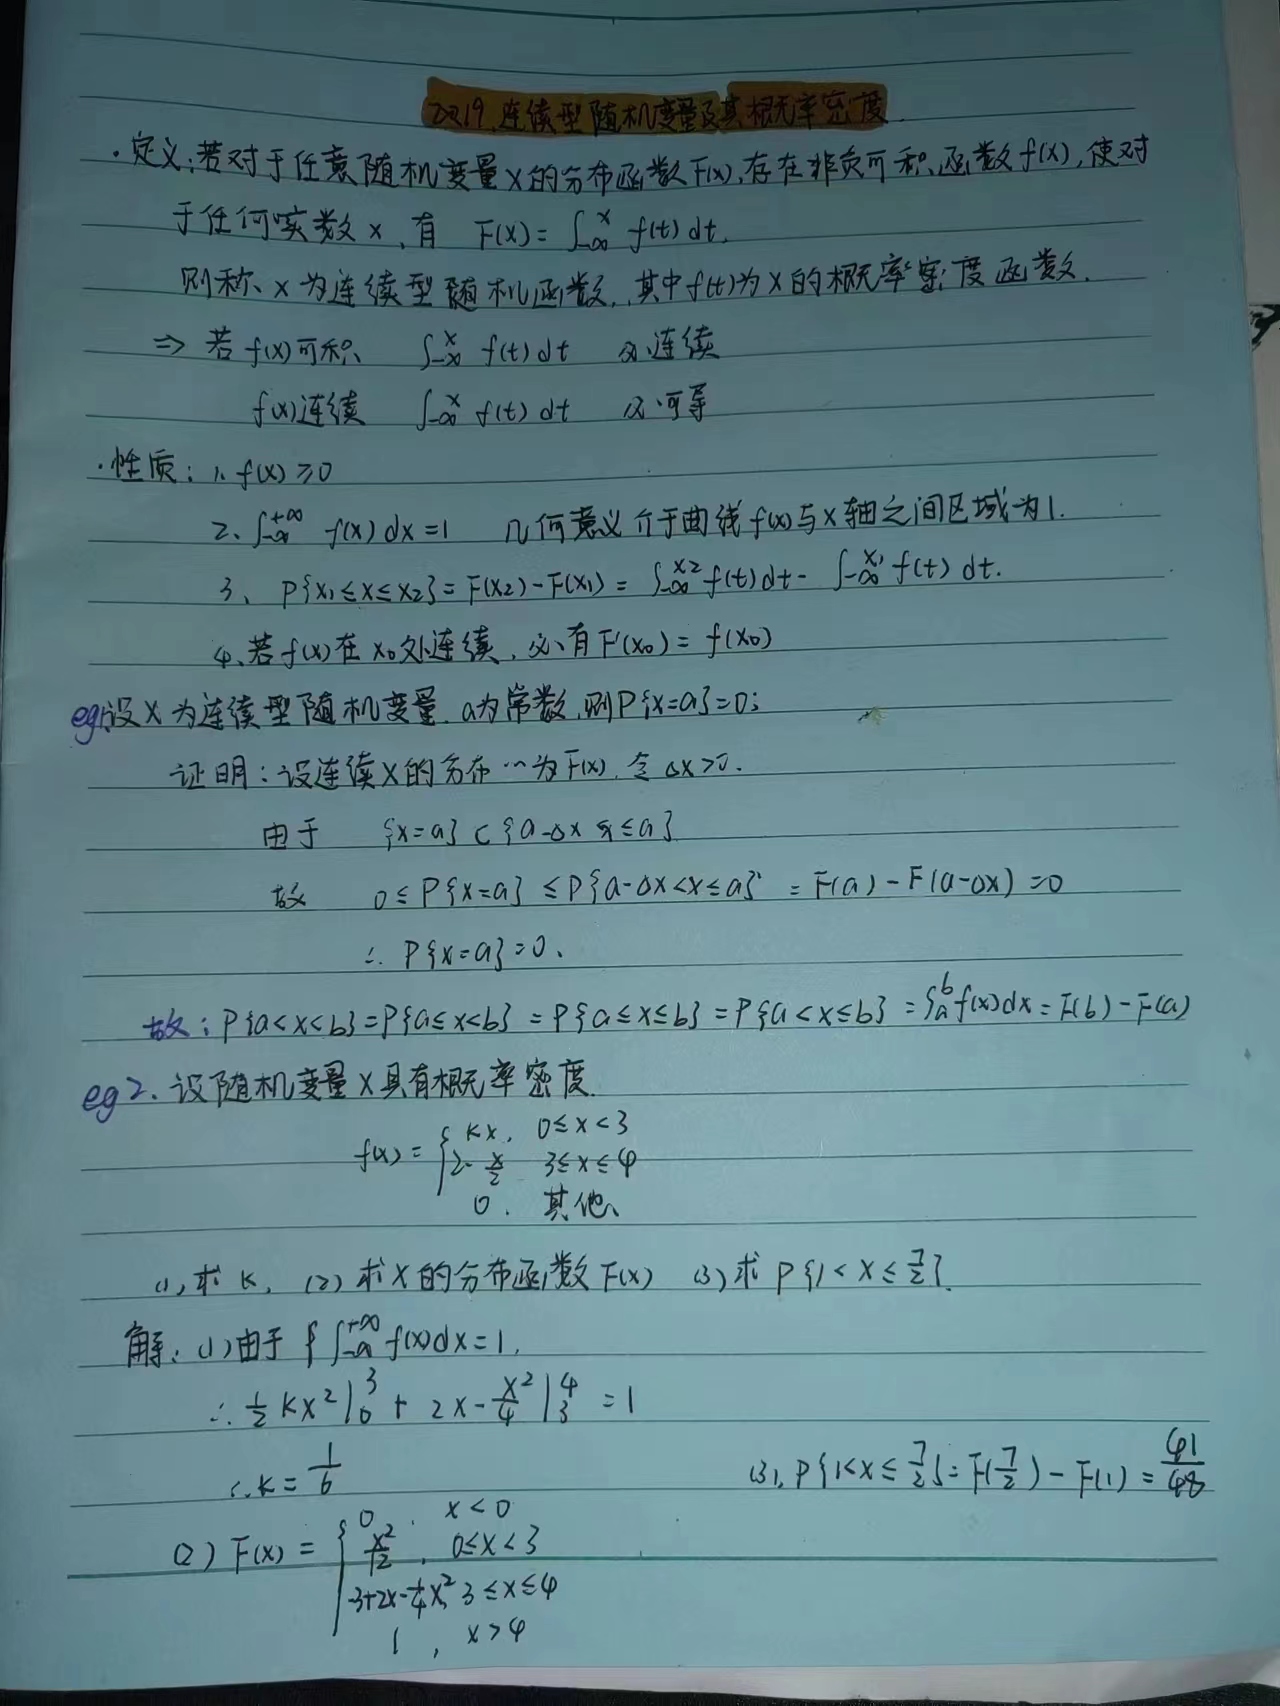 2.2.19.连续型随机变量及其概率密度.
·定义:若对于任意随机变量X的分布函数F(x),存在非负可积函数f(x),使对
于任何实数x,有 F(x)=∫_{-∞}^{x} f(t)dt.
则称x为连续型随机函数,其中f(t)为X的概率密度函数.
⇒ 若f(x)可积 ∫_{-∞}^{x} f(t)dt 必连续
f(x)连续 ∫_{-∞}^{x} f(t)dt 必可导
·性质:1. f(x)≥0
2、∫_{-∞}^{+∞} f(x)dx=1 几何意义介于曲线f(x)与X轴之间区域为1.
3、P{x₁≤x≤x₂}=F(x₂)-F(x₁)=∫_{-∞}^{x₂} f(t)dt-∫_{-∞}^{x₁} f(t)dt.
4、若f(x)在x₀处连续,必有F'(x₀)=f(x₀)
eg1.设X为连续型随机变量,a为常数,则P{x=a}=0;
证明:设连续X的分布…为F(x),令Δx>0.
由于 {x=a}⊂{a-Δx<x≤a}
故 0≤P{x=a}≤P{a-Δx<x≤a}=F(a)-F(a-Δx)=0
∴P{x=a}=0、
故:P{a<x<b}=P{a≤x<b}=P{a≤x≤b}=P{a<x≤b}=∫_{a}^{b} f(x)dx=F(b)-F(a)
eg2.设随机变量X具有概率密度.
f(x)={kx, 0≤x<3
2-x/2 3≤x≤4
0. 其他、
(1)求k, (2)求X的分布函数F(x) (3)求P{1<X≤7/2}.
解:(1)由于∫_{-∞}^{+∞} f(x)dx=1,
∴½kx²|₀³+2x-x²/4|₃⁴=1
∴k=1/6
(3),P{1<x≤7/2}=F(7/2)-F(1)=41/48
(2)F(x)={0, x<0
x²/12, 0≤x<3
-3+2x-¼x², 3≤x≤4
1, x>4